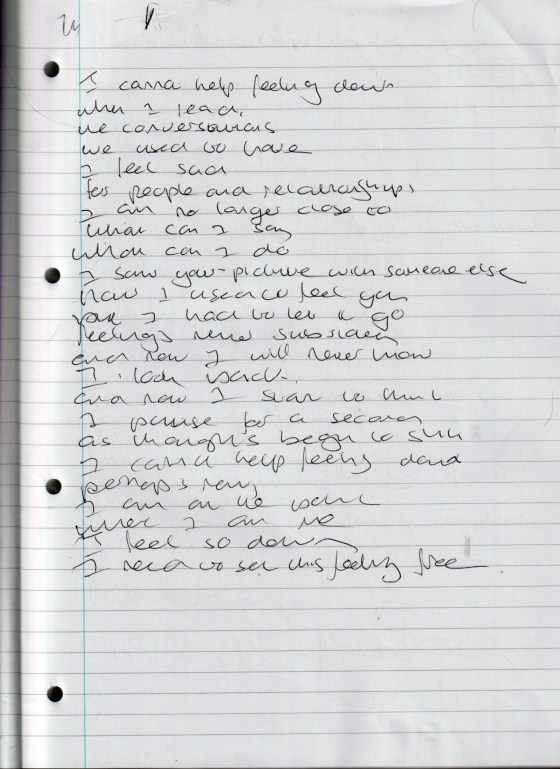 I canna help feeling down
when I read,
the conversations
we used to have
I feel sad
for people and relationships,
I am no longer close to
what can I say
what can I do
I saw your picture with someone else
how I used to feel you
I had to let it go
feelings never subsided
and now I will never know
I look back.
and now I start to think
I pause for a second
as thoughts begin to sink
I canna help feeling down
perhaps
I am on the
where I am
I feel so down
I need to set this feeling free